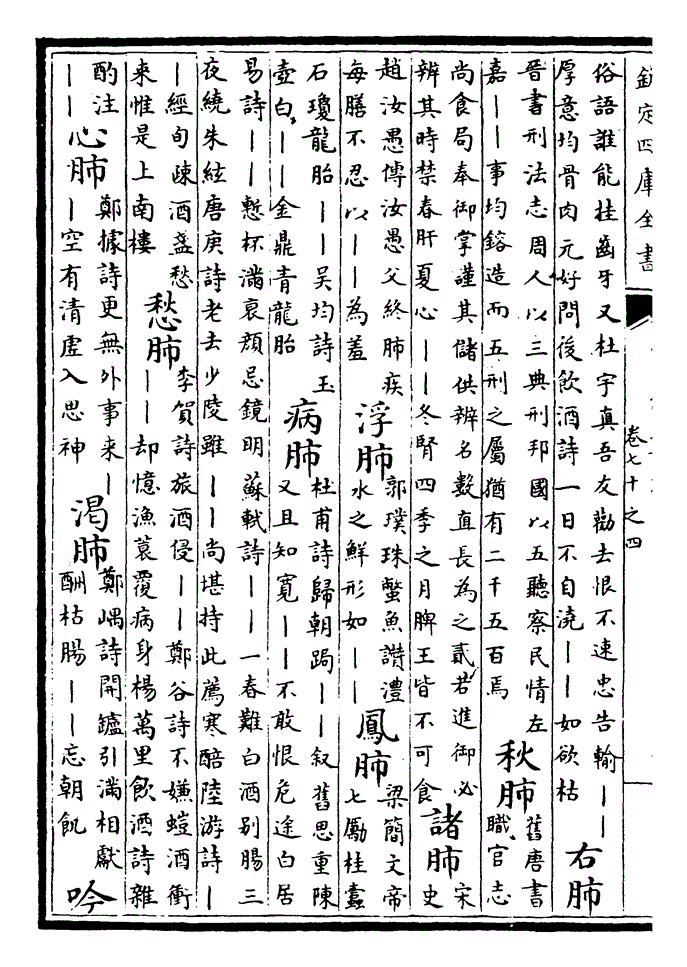 欽定四庫全書
卷七十之四
俗語誰能挂齒牙又杜宇真吾友勸去恨不速忠告輸｜｜
厚意均骨肉元好問後飲酒詩一日不自澆｜｜如欲枯
右肺
晉書刑法志周人以三典刑邦國以五聽察民情左
嘉｜｜事均鎔造而五刑之屬猶有二千五百焉
秋肺
舊唐書
職官志
尚食局奉御掌謹其儲供辨名數直長為之貳若進御必
辨其時禁春肝夏心｜｜冬腎四季之月脾王皆不可食
諸肺
宋
史
趙汝愚傳汝愚父終肺疾
每膳不忍以｜｜為羞
浮肺
郭璞珠蟞魚讚澧
水之鮮形如｜｜
鳳肺
梁簡文帝
七勵桂蠹
石瓊龍胎｜｜吳均詩玉
壺白｜｜金鼎青龍胎
病肺
杜甫詩歸朝跼｜｜叙舊思重陳
又且知寬｜｜不敢恨危途白居
易詩｜｜慙杯滿衰顏忌鏡明蘇軾詩｜｜一春難白酒別腸三
夜繞朱絃唐庚詩老去少陵雖｜｜尚堪持此薦寒醅陸游詩｜
｜經旬疎酒盞愁
來惟是上南樓
愁肺
李賀詩旅酒侵｜｜鄭谷詩不嫌螘酒衝
｜｜却憶漁蓑覆病身楊萬里飲酒詩雜
酌注
｜｜
心肺
鄭據詩更無外事來｜
｜空有清虛入思神
渴肺
鄭嵎詩開鑪引滿相獻
酬枯腸｜｜忘朝飢
吟